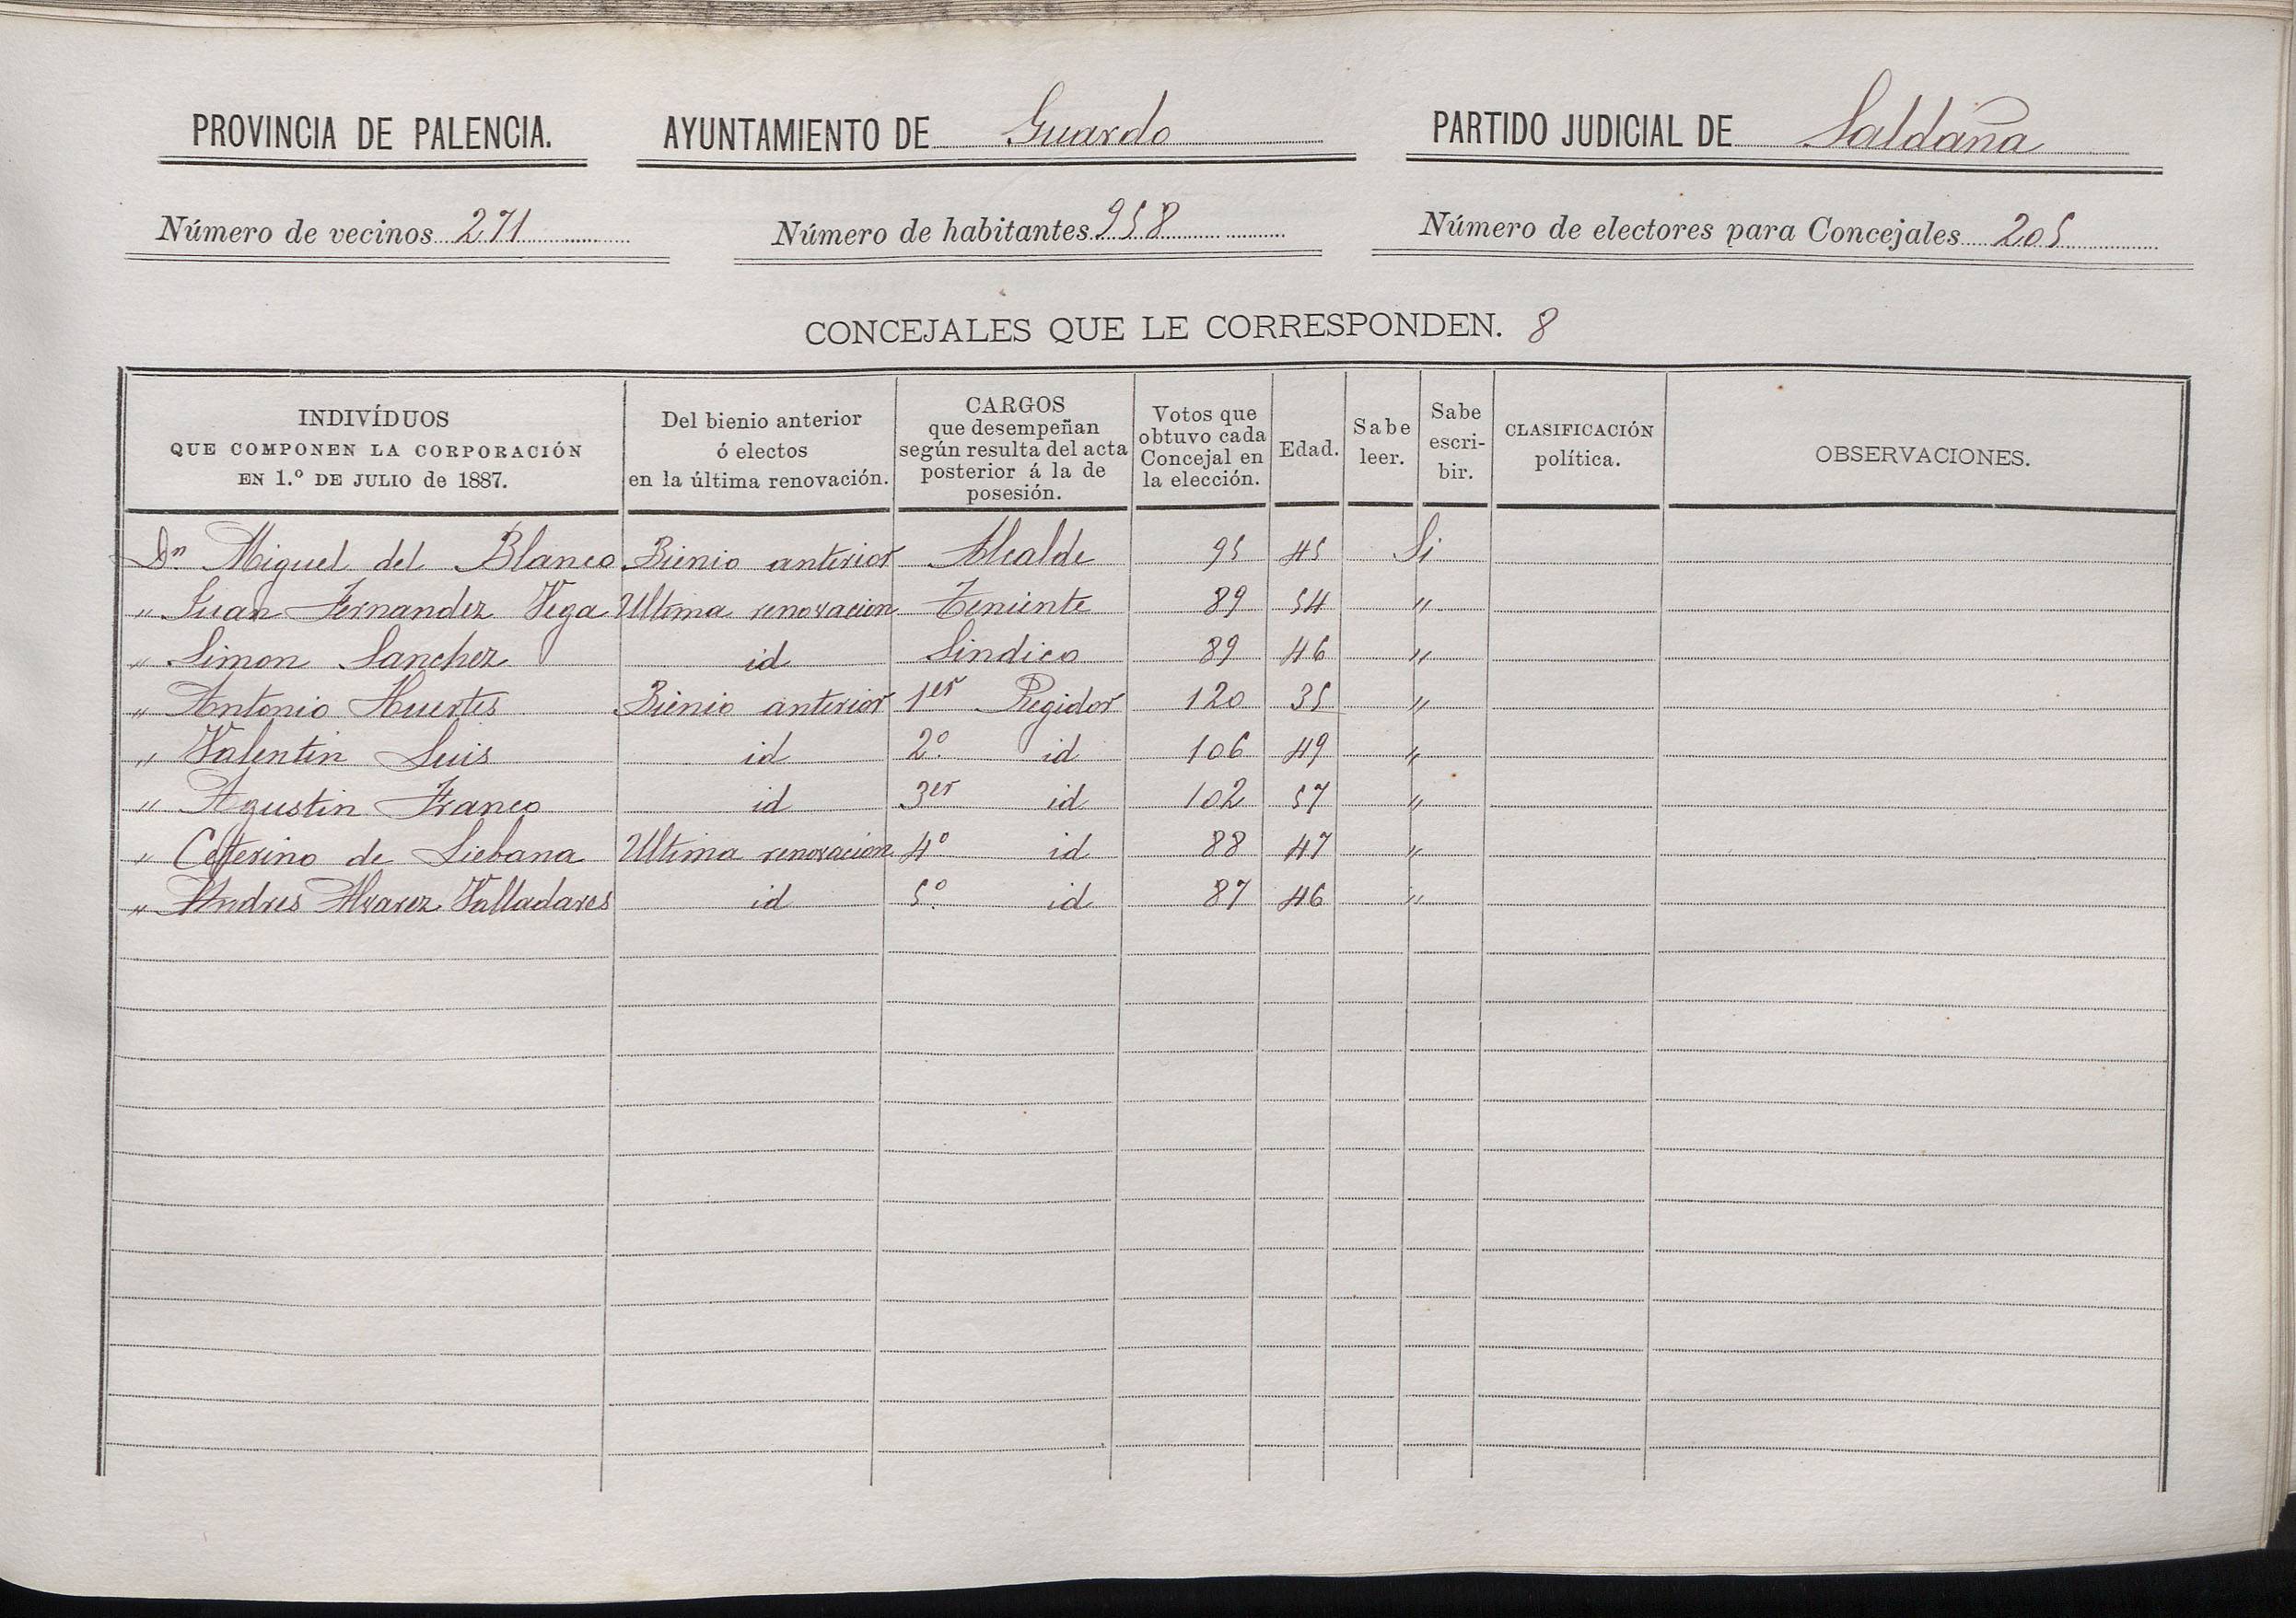 PROVINCIA DE PALENCIA. AYUNTAMIENTO DE Guardo PARTIDO JUDICIAL DE Saldaña
Número de vecinos 271 Número de habitantes 958 Número de electores para Concejales 205
CONCEJALES QUE LE CORRESPONDEN. 8
INDIVÍDUOS
QUE COMPONEN LA CORPORACIÓN
EN 1.º DE JULIO de 1887.
Del bienio anterior
ó electos
en la última renovación.
CARGOS
que desempeñan
según resulta del acta
posterior á la de
posesión.
Votos que
obtuvo cada
Concejal en
la elección.
Edad.
Sabe
leer.
Sabe
escri-
bir.
CLASIFICACIÓN
política.
OBSERVACIONES.
Dn Miguel del Blanco Bienio anterior Alcalde 95 45 Si
" Juan Fernandez Vega Ultima renovacion Teniente 89 54 "
" Simon Sanchez id Sindico 89 46 "
" Antonio Huertes Bienio anterior 1er Regidor 120 35 "
" Valentin Luis id 2º id 106 49 "
" Agustin Franco id 3er id 102 57 "
" Ceferino de Liebana Ultima renovacion 4º id 88 47 "
" Andres Alvarez Valladares id 5º id 87 46 "